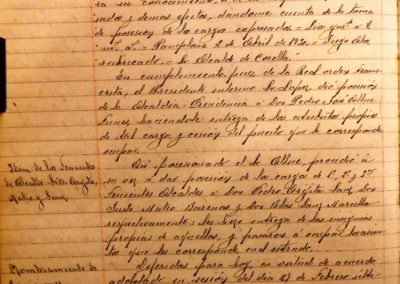 ra su conocimiento, a
nada y demas efectos, dandome cuenta de la toma
de posesion de la carga expresadas = Dios gue á V.
m. a.s = Pamplona 2 de Abril de 1930 = Diego
rubricado = Sr Alcalde de Corella.
En cumplimiento pues de la Real orden trans
crita, el Presidente interino Sr Lopez dió posesion
de la Alcaldia-Presidencia á Don Pedro José Allue
haciendole entrega de los atributos propios
de tal cargo y cesión del puesto que le corresponde
ocupar.
Idem de los Tenientes
de Alcalde S.S. Crijita
Mateo y Sanz.
Asi posesionado el Sr Allue, procedió á
su vez á dar posesion de los cargos de 1º, 2º y 3º
Tenientes Alcaldes á Don Pedro Crijita Sanz, Don
Justo Mateo Barcenas y Don Blas Sanz
respectivamente; les hizo entrega de las insignias
propias de aquellos, y pasaron á ocupar los asien
tos que les corresponde en el estrado.
Nombramiento de
Diferidas para hoy en virtud de acuerdo
adoptado en sesión del dia 27 de Febrero ulti-